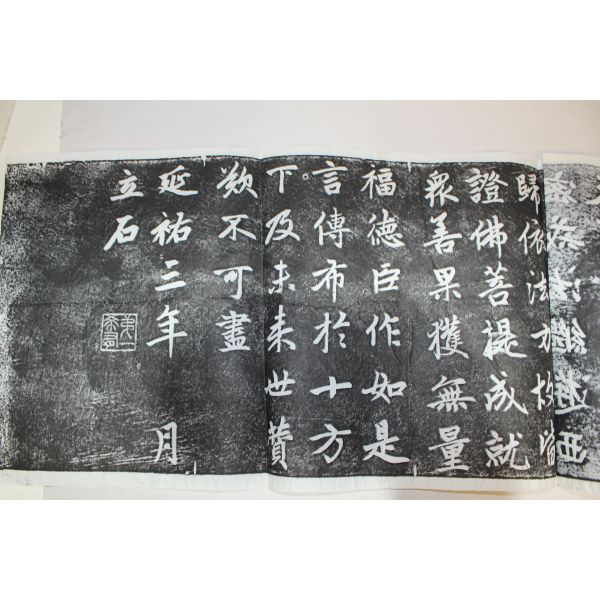 歸依法方故皆
證佛菩提成就
衆善果獲無量
福德臣作如是
言傳布於十方
下及未來世贊
歎不可盡
延祐三年 月
立石